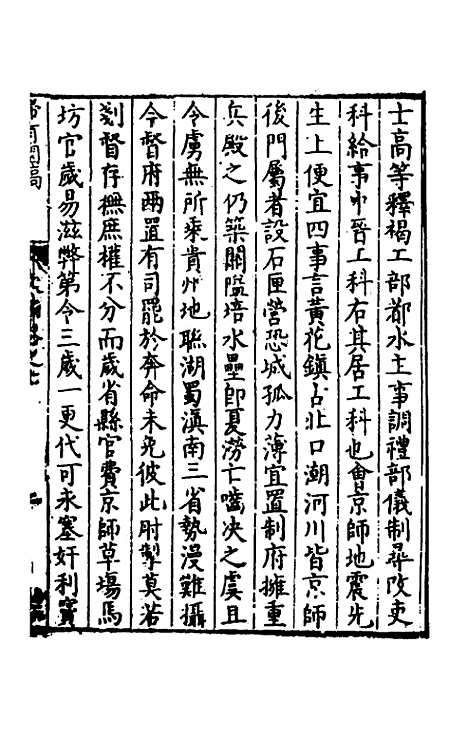 士高等釋褐工部都水主事調禮部儀制尋改吏
科給事中晉工科右其居工科也會京師地震先
生上便宜四事言黃花鎮古北口潮河川皆京師
後門屬者設石匣營恐城孤力薄宜置制府擁重
兵殿之仍築關隘培水壘即夏澇亡嚙决之虞且
令虜無所乘貴州地聮湖蜀滇南三省勢漫難攝
今督府兩置有司罷於奔命未免彼此肘掣莫若
剗督存撫庶權不分而歲省縣官費京師草場馬
坊官歲易滋弊第令三歲一更代可永塞奸利竇